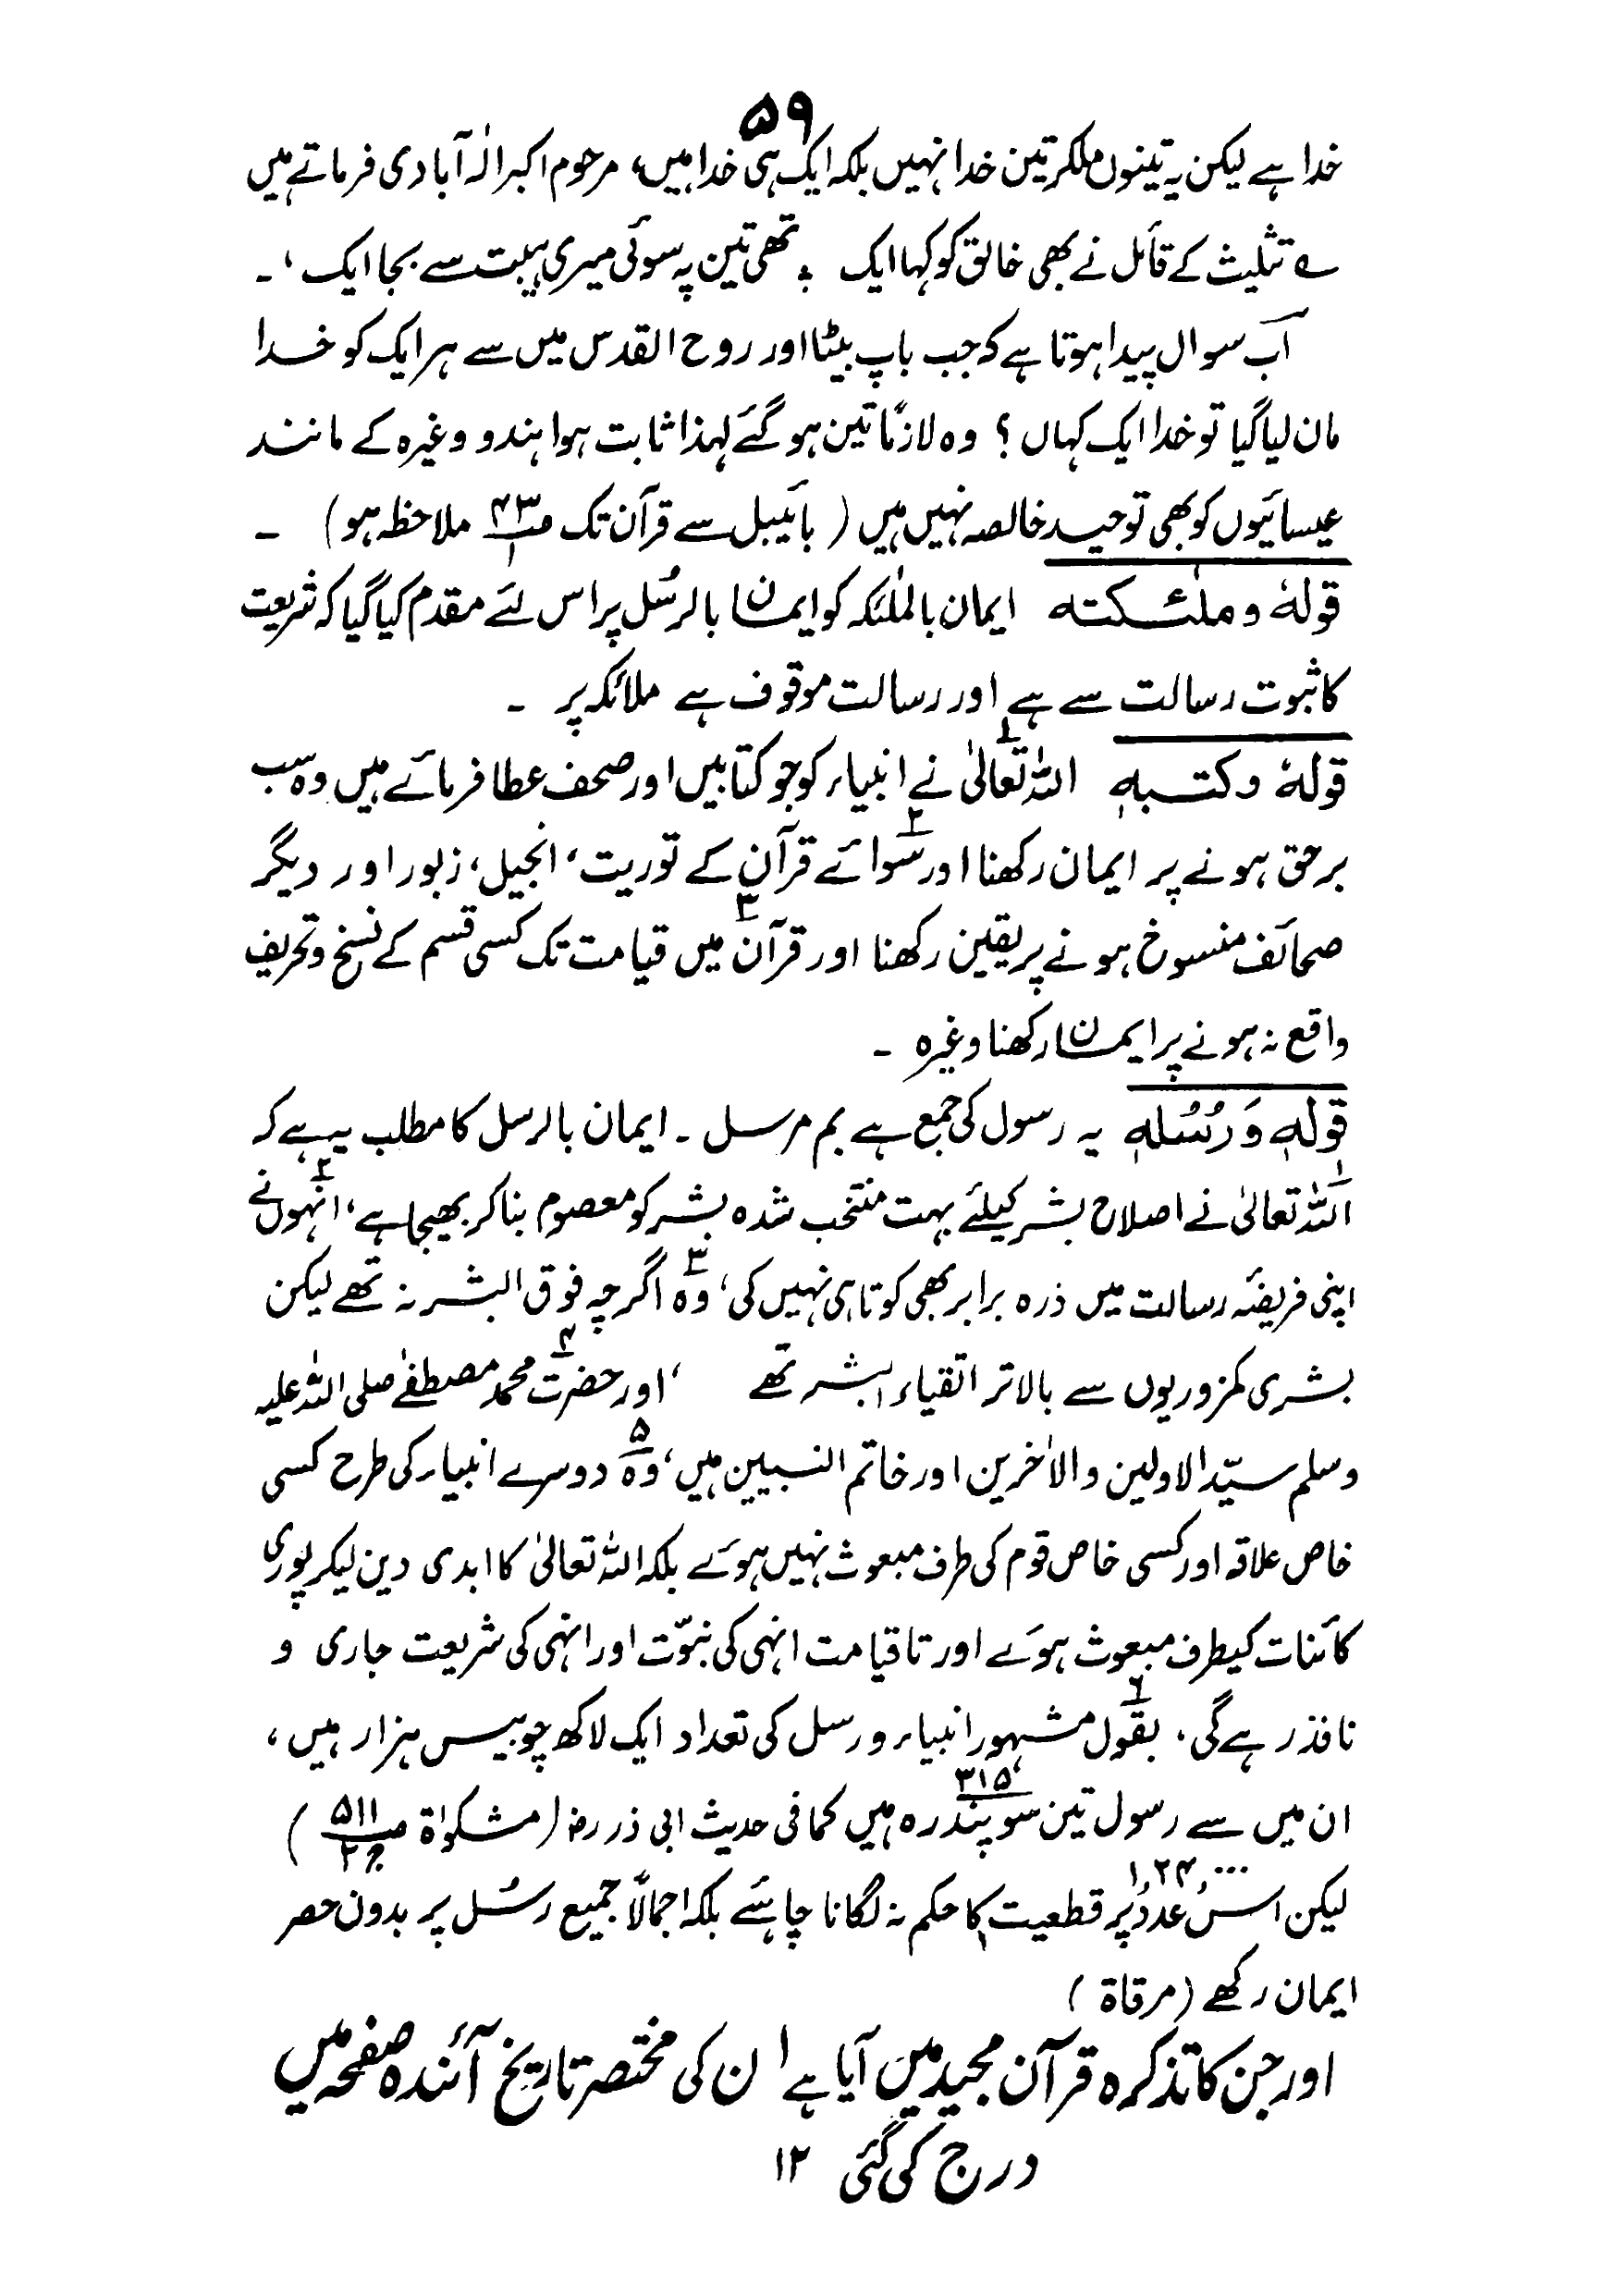 ۵۹
خدا ہے لیکن یہ تینوں ملکر تین خدا نہیں بلکہ ایک ہی خدا ہیں، مرحوم اکبر الٰہ آبادی فرماتے ہیں
؎ تثلیث کے قائل نے بھی خالق کو کہا ایک ؞ تھی تین پہ سوئی میری ہیبت سے بجا ایک ، ۔
اَب سوال پیدا ہوتا ہے کہ جب باپ بیٹا اور روح القدس میں سے ہر ایک کو خدا
مان لیا گیا تو خدا ایک کہاں ؟ وہ لازمًا تین ہو گئے لہذا ثابت ہوا ہندو وغیرہ کے مانند
عیسائیوں کو بھی توحید خالصہ نہیں ہیں ( بائیبل سے قرآن تک صـ۴۳ ۱ ملاحظہ ہو ) ۔
قولہٗ و ملٰئکتہ ایمان بالملٰئکہ کو ایمان بالرسُل پر اس لئے مقدم کیا گیا کہ شریعت
کا ثبوت رسالت سے ہے اور رسالت موقوف ہے ملائکہ پر ۔
قولہٗ وکتبہٖ ۱ اللہ تعالیٰ نے انبیاء کو جو کتابیں اور صحف عطا فرمائے ہیں وہ سب
برحق ہونے پر ایمان رکھنا اور ۲ سوائے قرآن کے توریت، انجیل، زبور اور دیگر
صحائف منسوخ ہونے پر یقین رکھنا اور ۳ قرآن میں قیامت تک کسی قسم کے نسخ وتحریف
واقع نہ ہونے پر ایمان رکھنا وغیرہ ۔
قولہٖ وَرُسُلہٖ یہ رسول کی جمع ہے بم مرسل ۔ ایمان بالرسل کا مطلب یہ ہے کہ
۱ اللہ تعالیٰ نے اصلاح بشر کیلئے بہت منتخب شدہ بشر کو معصوم بنا کر بھیجا ہے، ۲ انہوں نے
اپنی فریضۂ رسالت میں ذرہ برابر بھی کوتاہی نہیں کی، ۳ وہ اگرچہ فوق البشر نہ تھے لیکن
بشری کمزوریوں سے بالاتر اتقیاء البشر تھے ، ۴ اور حضرت محمد مصطفےٰ صلی اللہ علیہ
وسلم سیّد الاولین والاٰخرین اور خاتم النبیین ہیں، ۵ وہ دوسرے انبیاء کی طرح کسی
خاص علاقہ اور کسی خاص قوم کی طرف مبعوث نہیں ہوئے بلکہ اللہ تعالیٰ کا ابدی دین لیکر پوری
کائنات کیطرف مبعوث ہوئے اور تا قیامت انہی کی نبوّت اور انہی کی شریعت جاری و
نافذ رہے گی، ۶ بقول مشہور انبیاء و رسل کی تعداد ایک لاکھ چوبیس ہزار ہیں،
ان میں سے رسول تین سو پندرہ ۳۱۵ ہیں کما فی حدیث ابی ذر رض (مشکوٰة صـ۵۱۱ ج۲)
لیکن اس عدد ۱,۲۴,۰۰۰ پر قطعیت کا حکم نہ لگانا چاہئے بلکہ اجمالًا جمیع رسُل پر بدون حصر
ایمان رکھے (مرقاة )
اور جن کا تذکرہ قرآن مجید میں آیا ہے ان کی مختصر تاریخ آئندہ صفحہ میں
درج کی گئی ۱۲